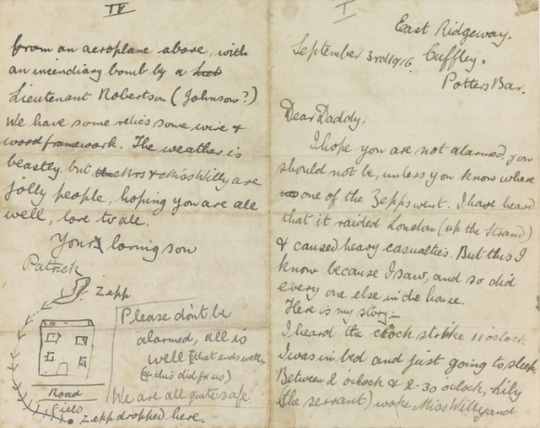 I
East Ridgeway.
September 3rd 1916. Cuffley.
Potters Bar.
Dear Daddy.
I hope you are not alarmed, you
should not be, unless you know where
one of the Zepps went. I have heard
that it raided London (up the Strand)
& caused heavy casualties. But this I
know because I saw, and so did
every one else in the house.
Here is my story:-
I heard the clock strike 11 o'clock
I was in bed and just going to sleep
Between 2 o'clock & 2-30 o'clock,
(the servant) woke Miss Willy and
IV
from an aeroplane above, with
an incendiary bomb by a
Lieutenant Robertson (Johnson?)
We have some relics some wire &
wood framework. The weather is
beastly but Mrs & Miss Willy are
jolly people, hoping you are all
well, love to all.
Your loving son
Patrick
Zepp
Please don't be
alarmed, all is
well (that ends well
(& this did for us)
We are all quite safe
Road
Field
Zepp dropped here.